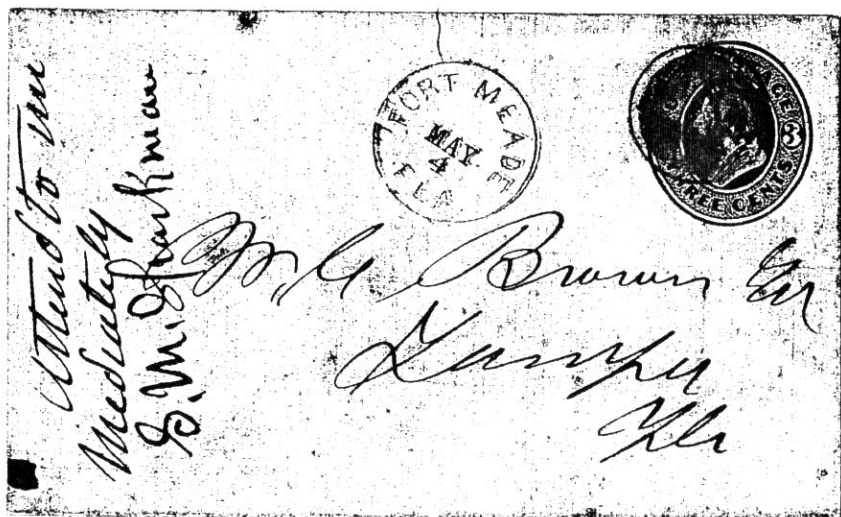 Attend to im
mediately
S. M. Sparkman
FORT MEADE
MAY
4
FLA
AGE
3
REE CENTS
Brown
Tampa
Fla